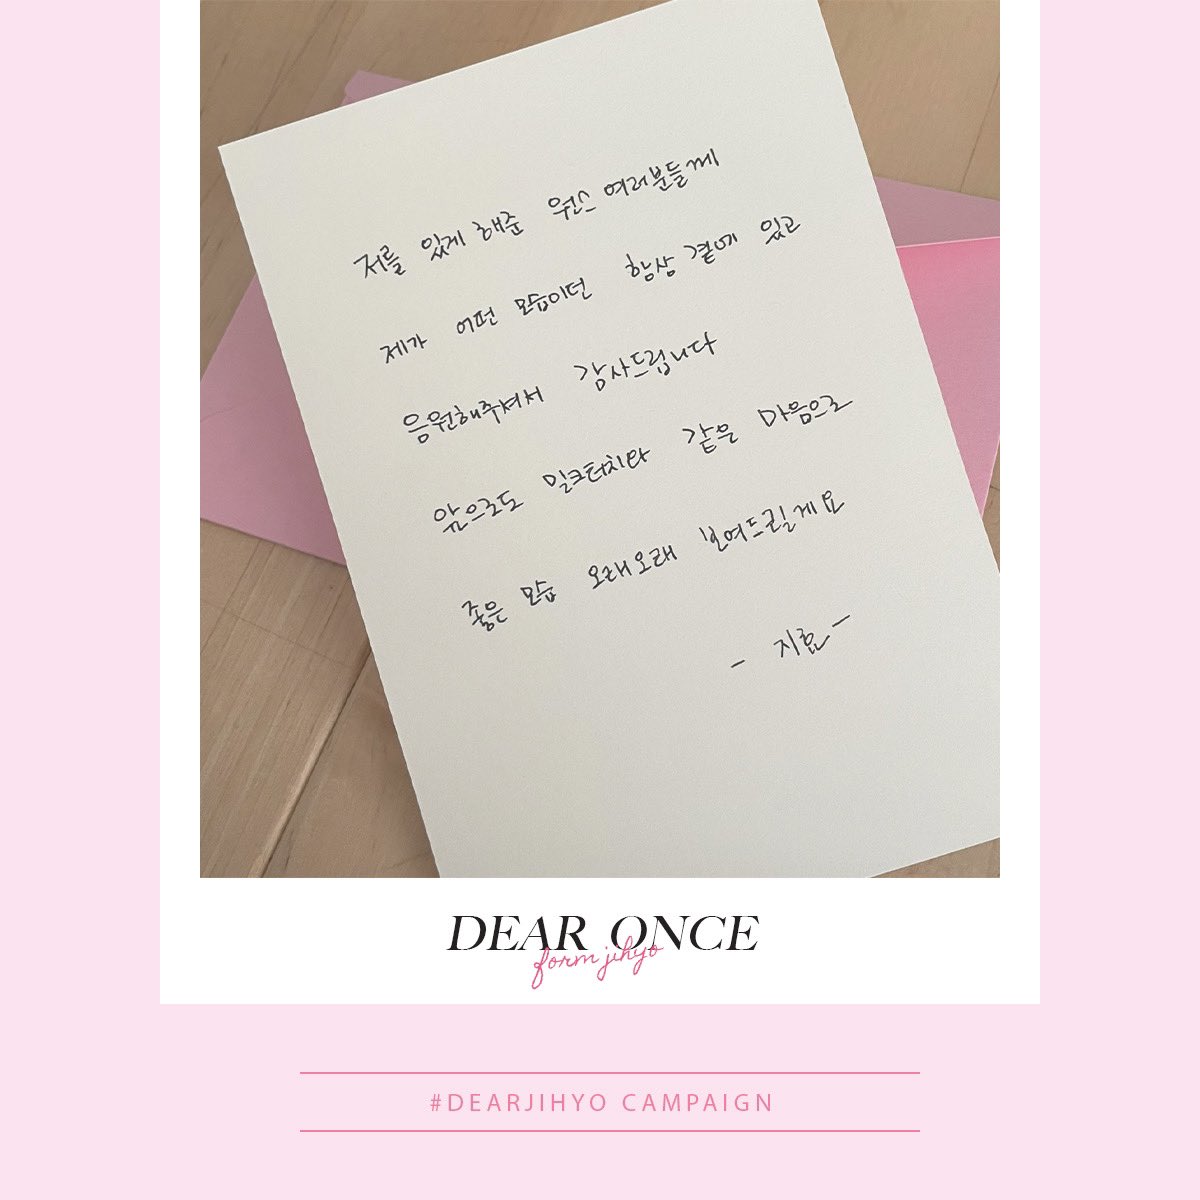 저를 있게 해준 원스 여러분들께
제가 어떤 모습이던 항상 곁에 있고
응원해주셔서 감사드립니다
앞으로도 밀크터치와 같은 마음으로
좋은 모습 오래오래 보여드릴게요
- 지효 -
DEAR ONCE
form jihyo
#DEARJIHYO CAMPAIGN